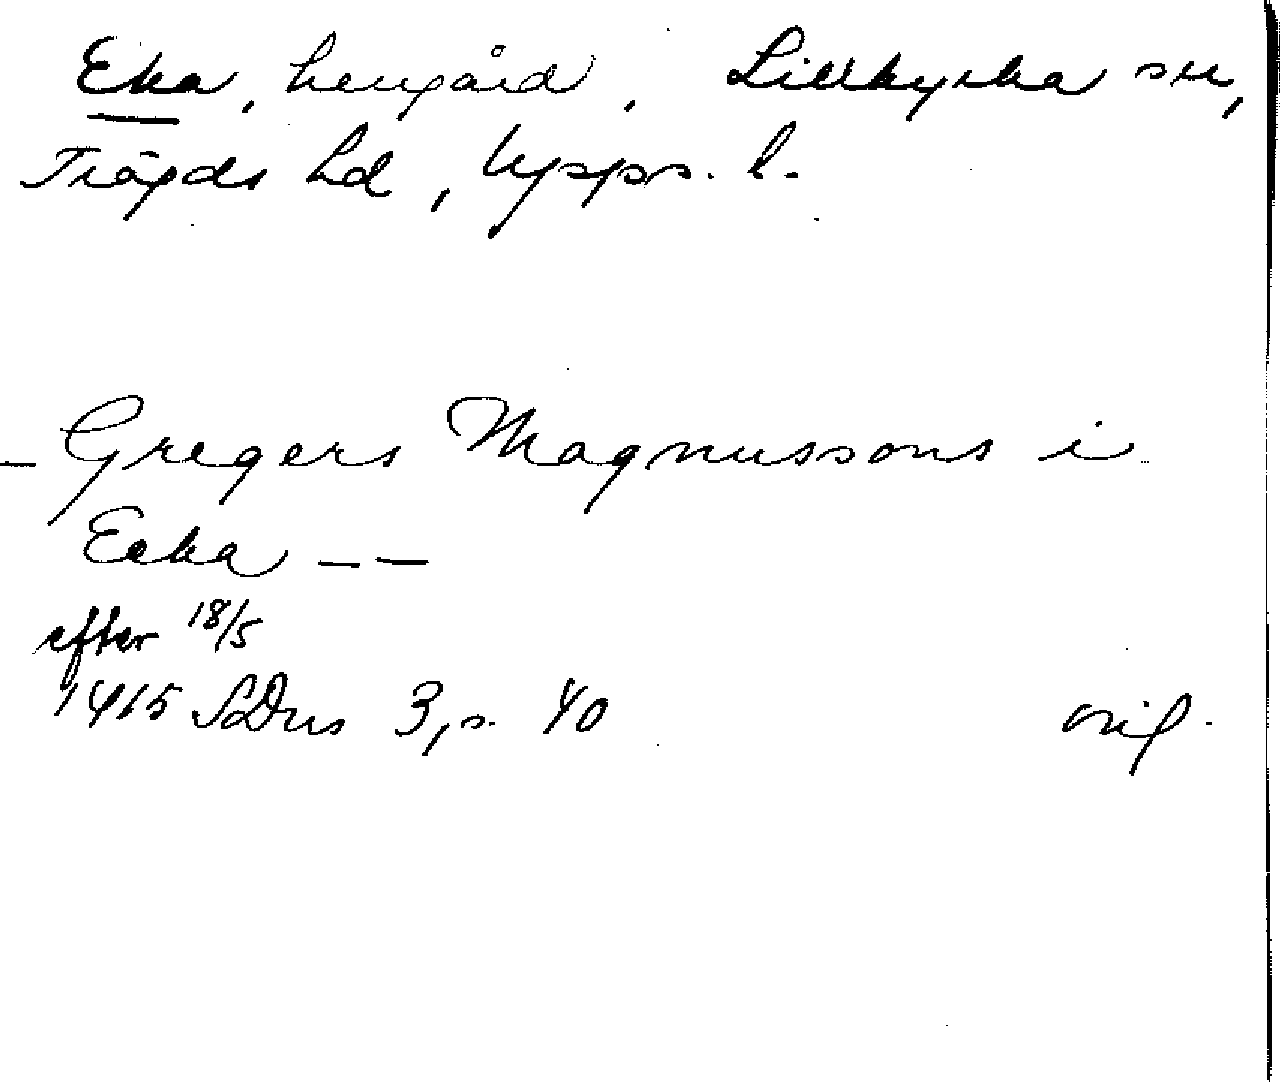 Eka, herrgård, Lillkyrka sn,
Trögds hd, Upps. l.
– Gregers Magnussons i
Ecka – –
efter 18/5
1415 SDns 3, s. 40 orig.